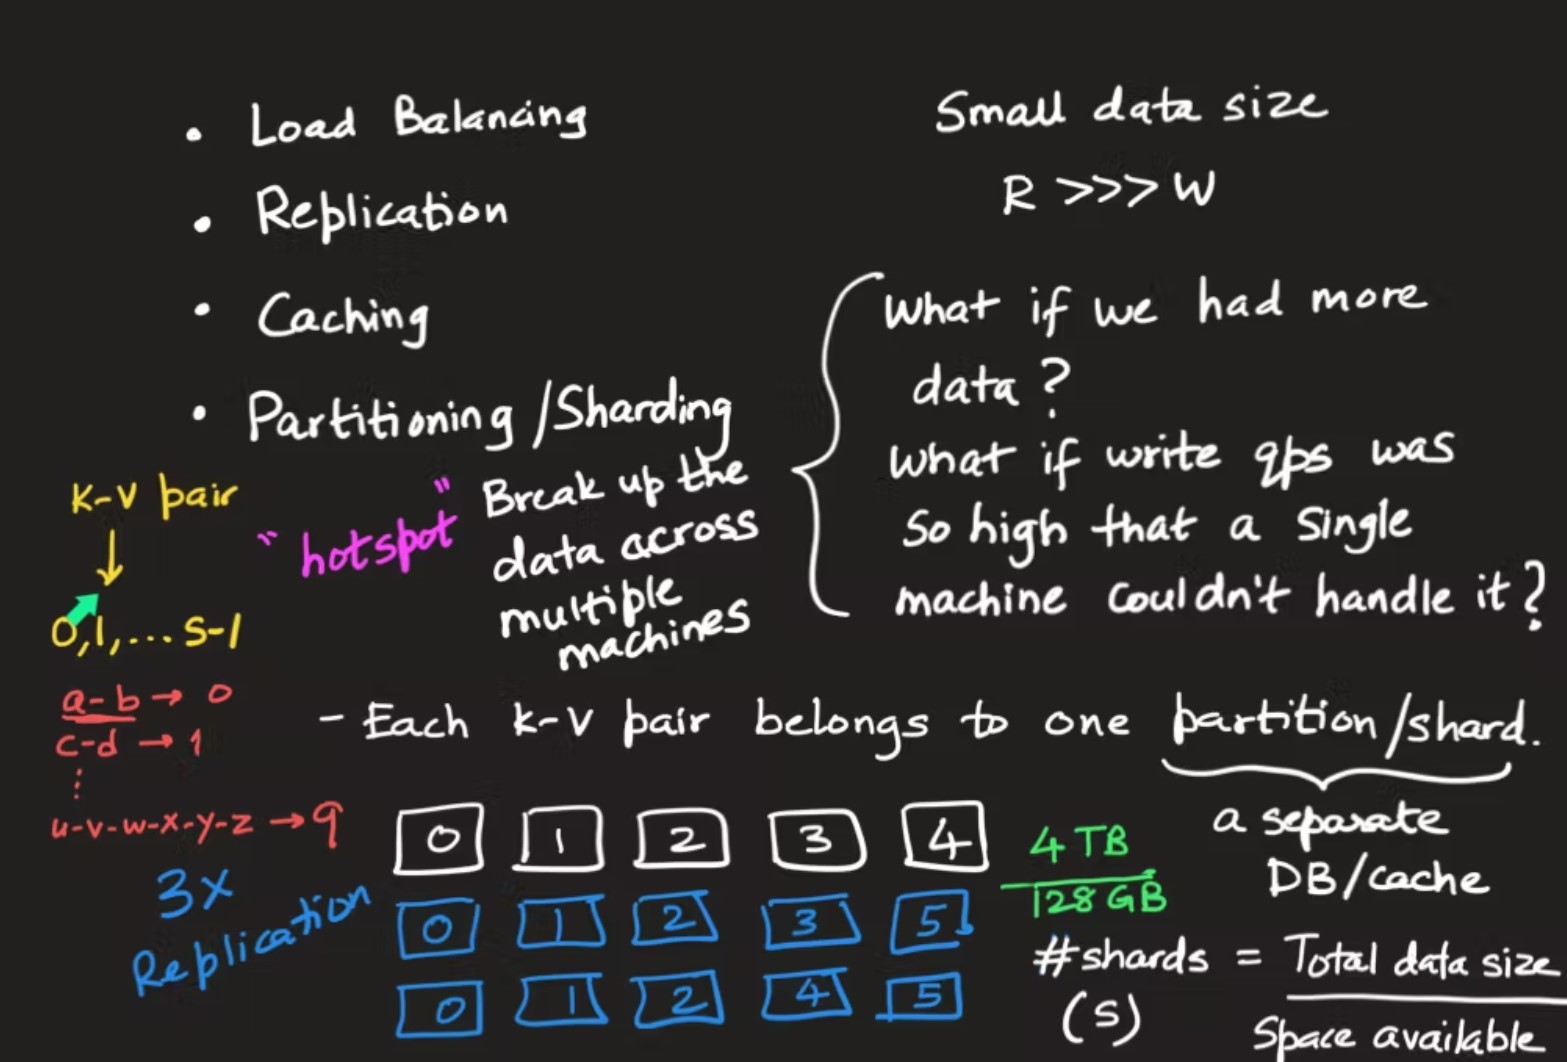 • Load Balancing
• Replication
• Caching
• Partitioning/Sharding
Break up the
data across
multiple
machines
"hotspot"
Small data size
R >>> W
What if we had more
data?
What if write qps was
so high that a single
machine couldn't handle it?
K-V pair
↓
0,1,... S-1
a-b → 0
c-d → 1
⋮
u-v-w-x-y-z → 9
- Each k-v pair belongs to one partition/shard.
a separate
DB/cache
0 1 2 3 4
3x
Replication
0 1 2 3 5
0 1 2 4 5
4 TB
128 GB
#shards = Total data size
(S)
Space available